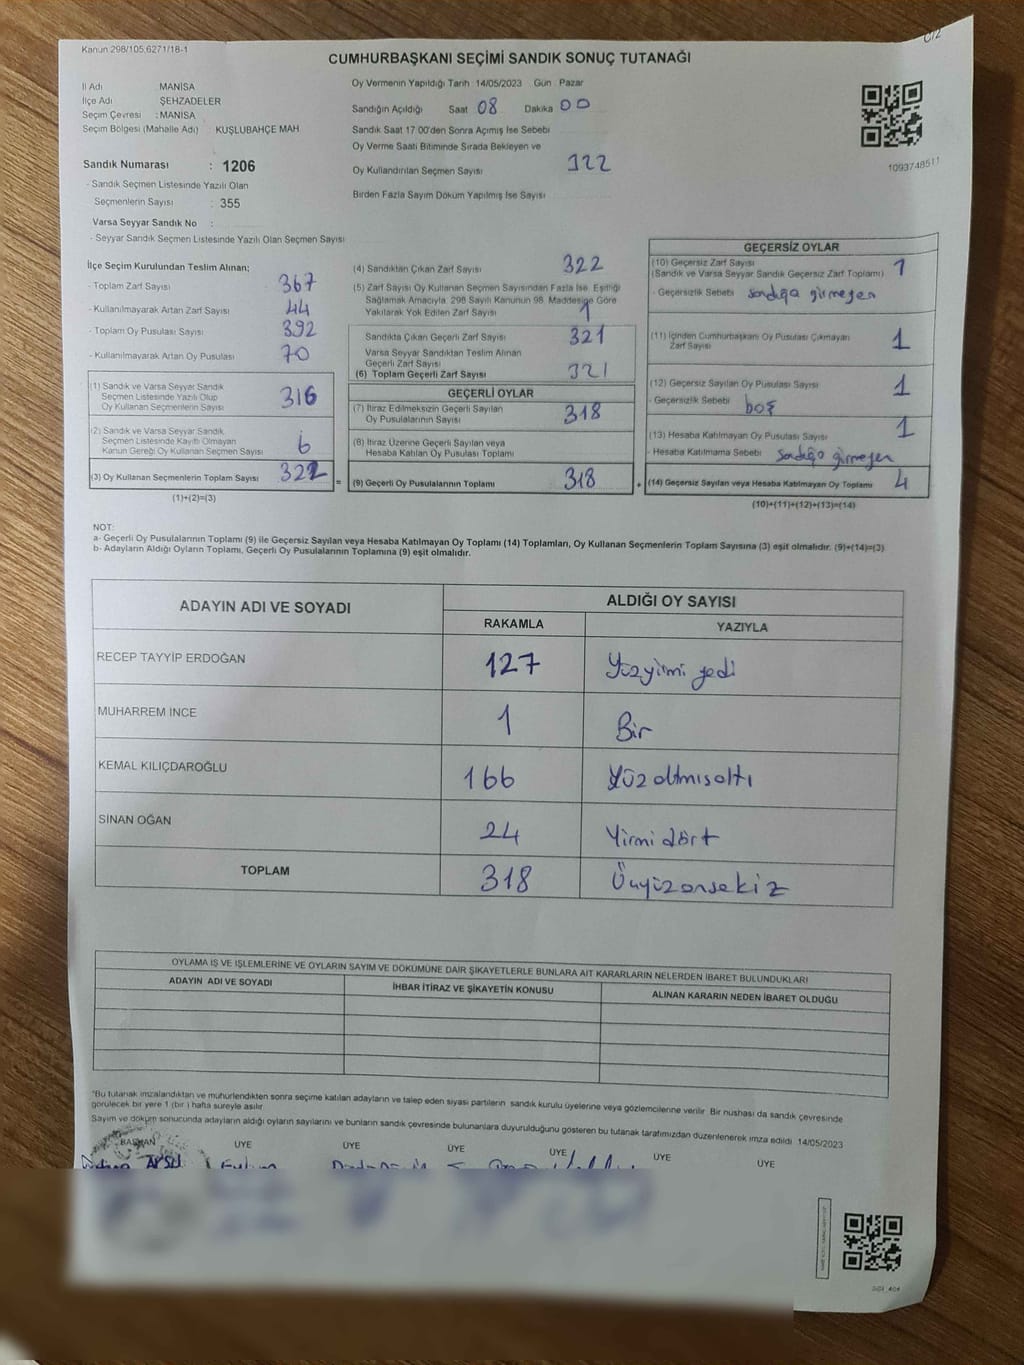 Kanun 298/105,6271/18-1
C/2
CUMHURBAŞKANI SEÇİMİ SANDIK SONUÇ TUTANAĞI
İl Adı MANİSA
İlçe Adı ŞEHZADELER
Seçim Çevresi : MANİSA
Seçim Bölgesi (Mahalle Adı) KUŞLUBAHÇE MAH
Sandık Numarası : 1206
- Sandık Seçmen Listesinde Yazılı Olan
Seçmenlerin Sayısı : 355
Varsa Seyyar Sandık No :
- Seyyar Sandık Seçmen Listesinde Yazılı Olan Seçmen Sayısı
Oy Vermenin Yapıldığı Tarih 14/05/2023 Gün Pazar
Sandığın Açıldığı Saat 08 Dakika 00
Sandık Saat 17 00'den Sonra Açımış İse Sebebi
Oy Verme Saati Bitiminde Sırada Bekleyen ve
Oy Kullandırılan Seçmen Sayısı 322
Birden Fazla Sayım Döküm Yapılmış İse Sayısı
1093748511
İlçe Seçim Kurulundan Teslim Alınan;
- Toplam Zarf Sayısı 367
- Kullanılmayarak Artan Zarf Sayısı 44
- Toplam Oy Pusulası Sayısı 392
- Kullanılmayarak Artan Oy Pusulası 70
(1) Sandık ve Varsa Seyyar Sandık
Seçmen Listesinde Yazılı Olup
Oy Kullanan Seçmenlerin Sayısı 316
(2) Sandık ve Varsa Seyyar Sandık
Seçmen Listesinde Kayıtlı Olmayan
Kanun Gereği Oy Kullanan Seçmen Sayısı 6
(3) Oy Kullanan Seçmenlerin Toplam Sayısı 322
(1)+(2)=(3)
=
(4) Sandıktan Çıkan Zarf Sayısı 322
(5) Zarf Sayısı Oy Kullanan Seçmen Sayısından Fazla İse, Eşitliği
Sağlamak Amacıyla, 298 Sayılı Kanunun 98. Maddesine Göre
Yakılarak Yok Edilen Zarf Sayısı 1
Sandıkta Çıkan Geçerli Zarf Sayısı 321
Varsa Seyyar Sandıktan Teslim Alınan
Geçerli Zarf Sayısı
(6) Toplam Geçerli Zarf Sayısı 321
GEÇERLİ OYLAR
(7) İtiraz Edilmeksizin Geçerli Sayılan
Oy Pusulalarının Sayısı 318
(8) İtiraz Üzerine Geçerli Sayılan veya
Hesaba Katılan Oy Pusulası Toplamı
(9) Geçerli Oy Pusulalarının Toplamı 318
+
GEÇERSİZ OYLAR
(10) Geçersiz Zarf Sayısı
(Sandık ve Varsa Seyyar Sandık Geçersiz Zarf Toplamı) 1
- Geçersizlik Sebebi sandığa girmeyen
(11) İçinden Cumhurbaşkanı Oy Pusulası Çıkmayan
Zarf Sayısı 1
(12) Geçersiz Sayılan Oy Pusulası Sayısı 1
- Geçersizlik Sebebi boş
(13) Hesaba Katılmayan Oy Pusulası Sayısı 1
- Hesaba Katılmama Sebebi sandığa girmeyen
(14) Geçersiz Sayılan veya Hesaba Katılmayan Oy Toplamı 4
(10)+(11)+(12)+(13)=(14)
NOT:
a- Geçerli Oy Pusulalarının Toplamı (9) ile Geçersiz Sayılan veya Hesaba Katılmayan Oy Toplamı (14) Toplamları, Oy Kullanan Seçmenlerin Toplam Sayısına (3) eşit olmalıdır. (9)+(14)=(3)
b- Adayların Aldığı Oyların Toplamı, Geçerli Oy Pusulalarının Toplamına (9) eşit olmalıdır.
ADAYIN ADI VE SOYADI
ALDIĞI OY SAYISI
RAKAMLA YAZIYLA
RECEP TAYYİP ERDOĞAN 127 Yüzyirmi yedi
MUHARREM İNCE 1 Bir
KEMAL KILIÇDAROĞLU 166 Yüz altmışaltı
SİNAN OĞAN 24 Yirmi dört
TOPLAM 318 Üçyüzonsekiz
OYLAMA İŞ VE İŞLEMLERİNE VE OYLARIN SAYIM VE DÖKÜMÜNE DAİR ŞİKAYETLERLE BUNLARA AİT KARARLARIN NELERDEN İBARET BULUNDUKLARI
ADAYIN ADI VE SOYADI İHBAR İTİRAZ VE ŞİKAYETİN KONUSU ALINAN KARARIN NEDEN İBARET OLDUĞU
"Bu tutanak imzalandıktan ve mühürlendikten sonra seçime katılan adayların ve talep eden siyasi partilerin sandık kurulu üyelerine veya gözlemcilerine verilir Bir nushası da sandık çevresinde
görülecek bir yere 1 (bir ) hafta süreyle asılır
Sayım ve döküm sonucunda adayların aldığı oyların sayılarını ve bunların sandık çevresinde bulunanlara duyurulduğunu gösteren bu tutanak tarafımızdan düzenlenerek imza edildi 14/05/2023
BAŞKAN ÜYE ÜYE ÜYE ÜYE ÜYE ÜYE